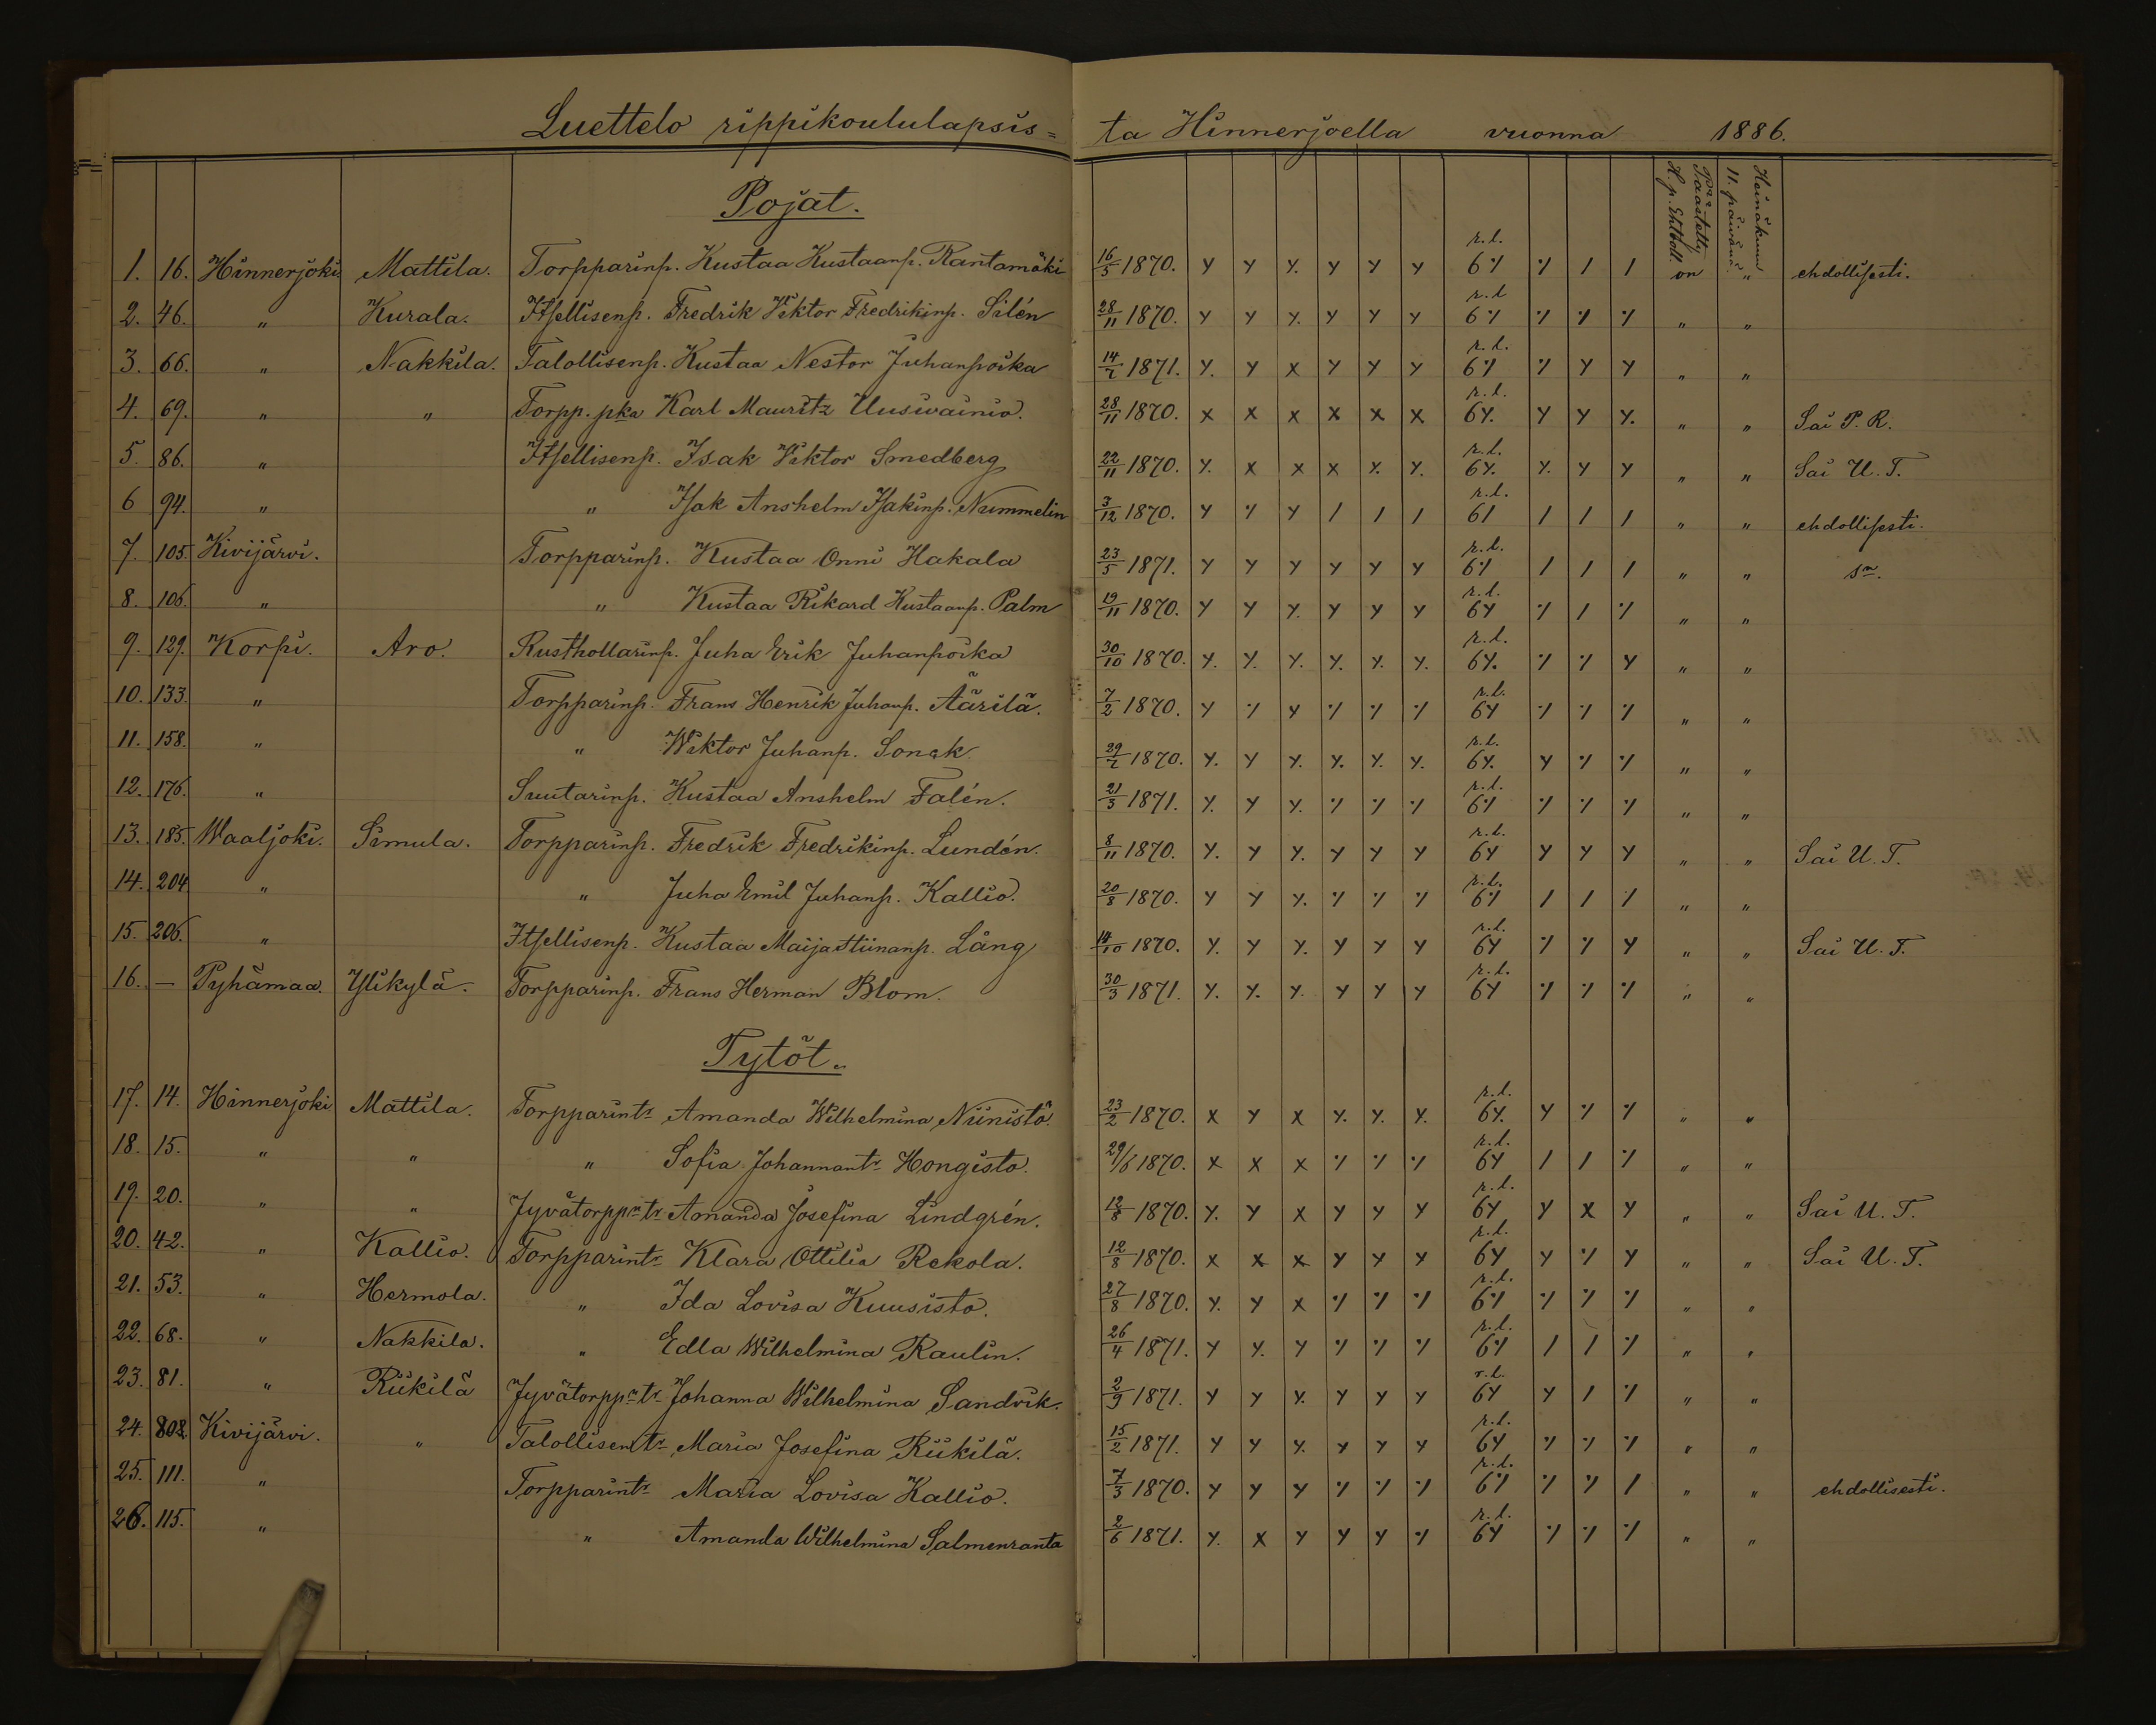 Luettelo rippikoululapsis= ta Hinnerjoella vuonna 1886.
Päästetty H. p. Ehtooll. Heinäkuun 11. päivänä.
Pojat.
1. 16. Hinnerjoki Mattila. Torpparinp. Kustaa Kustaanp. Rantamäki 16/5 1870. r.l. 6 on " ehdollisesti.
2. 46. " Kurala. Itsellisenp. Fredrik Viktor Fredrikinp. Silén 28/11 1870. r.l. 6 " "
3. 66. " Nakkila. Talollisenp. Kustaa Nestor Juhanpoika 14/2 1871. r.l. 6 " "
4. 69. " " Torpp. pka Karl Mauritz Uusivainio. 28/11 1870. x x x x x x r.l. 6 " " Sai P. R.
5. 86. " Itsellisenp. Isak Viktor Smedberg 22/11 1870. r.l. 6 " " Sai U. T.
6 94. " " Isak Anshelm Isakinp. Nummelin 3/12 1870. r.l. 6 " " ehdollisesti.
7. 105. Kivijärvi. Torpparinp. Kustaa Onni Hakala 23/5 1871. r.l. 6 " " sn.
8. 106. " " Kustaa Rikard Kustaanp. Palm 19/11 1870. r.l. 6 " "
9. 129. Korpi. Aro. Rusthollarinp. Juha Erik Juhanpoika 30/10 1870. r.l. 6 " "
10. 133. " Torpparinp. Frans Henrik Juhanp. Äärilä. 7/2 1870. r.l. 6 " "
11. 158. " " Wiktor Juhanp. Sonak. 29/2 1870. r.l. 6 " "
12. 176. " Suutarinp. Kustaa Anshelm Falén. 21/3 1871. r.l. 6 " "
13. 185. Waaljoki. Simula. Torpparinp. Fredrik Fredrikinp. Lundén. 8/11 1870. r.l. 6 " " Sai U. T.
14. 204 " " Juha Emil Juhanp. Kallio. 20/8 1870. r.l. 6 " "
15. 206. " Itsellisenp. Kustaa Maija Stiinanp. Lång 14/10 1870. r.l. 6 " " Sai U. T.
16. — Pyhämaa. Ylikylä. Torpparinp. Frans Herman Blom. 30/3 1871. r.l. 6 " "
Tytöt.
17. 14. Hinnerjoki Mattila. Torpparintr Amanda Wilhelmina Niinistö. 23/2 1870. r.l. 6 " "
18. 15. " " " Sofia Johannantr Hongisto. 29/6 1870. r.l. 6 " "
19. 20. " " Jyvätorpp:n tr Amanda Josefina Lindgrén. 12/8 1870. r.l. 6 " " Sai U. T.
20. 42. " Kallio. Torpparintr Klara Ottilia Rekola. 12/8 1870. r.l. 6 " " Sai U. T.
21. 53. " Hermola. " Ida Lovisa Kuusisto. 27/8 1870. r.l. 6 " "
22. 68. " Nakkila. " Edla Wilhelmina Raulin. 26/4 1871. r.l. 6 " "
23. 81. " Riikilä Jyvätorpp:n tr Johanna Wilhelmina Sandvik. 2/9 1871. r.l. 6 " "
24. 108 Kivijärvi. " Talollisentr Maria Josefina Riikilä. 15/2 1871. r.l. 6 " "
25. 111. " Torpparintr Maria Lovisa Kallio. 7/3 1870. r.l. 6 " " ehdollisesti.
26. 115. " " Amanda Wilhelmina Salmenranta 2/6 1871. r.l. 6 " "